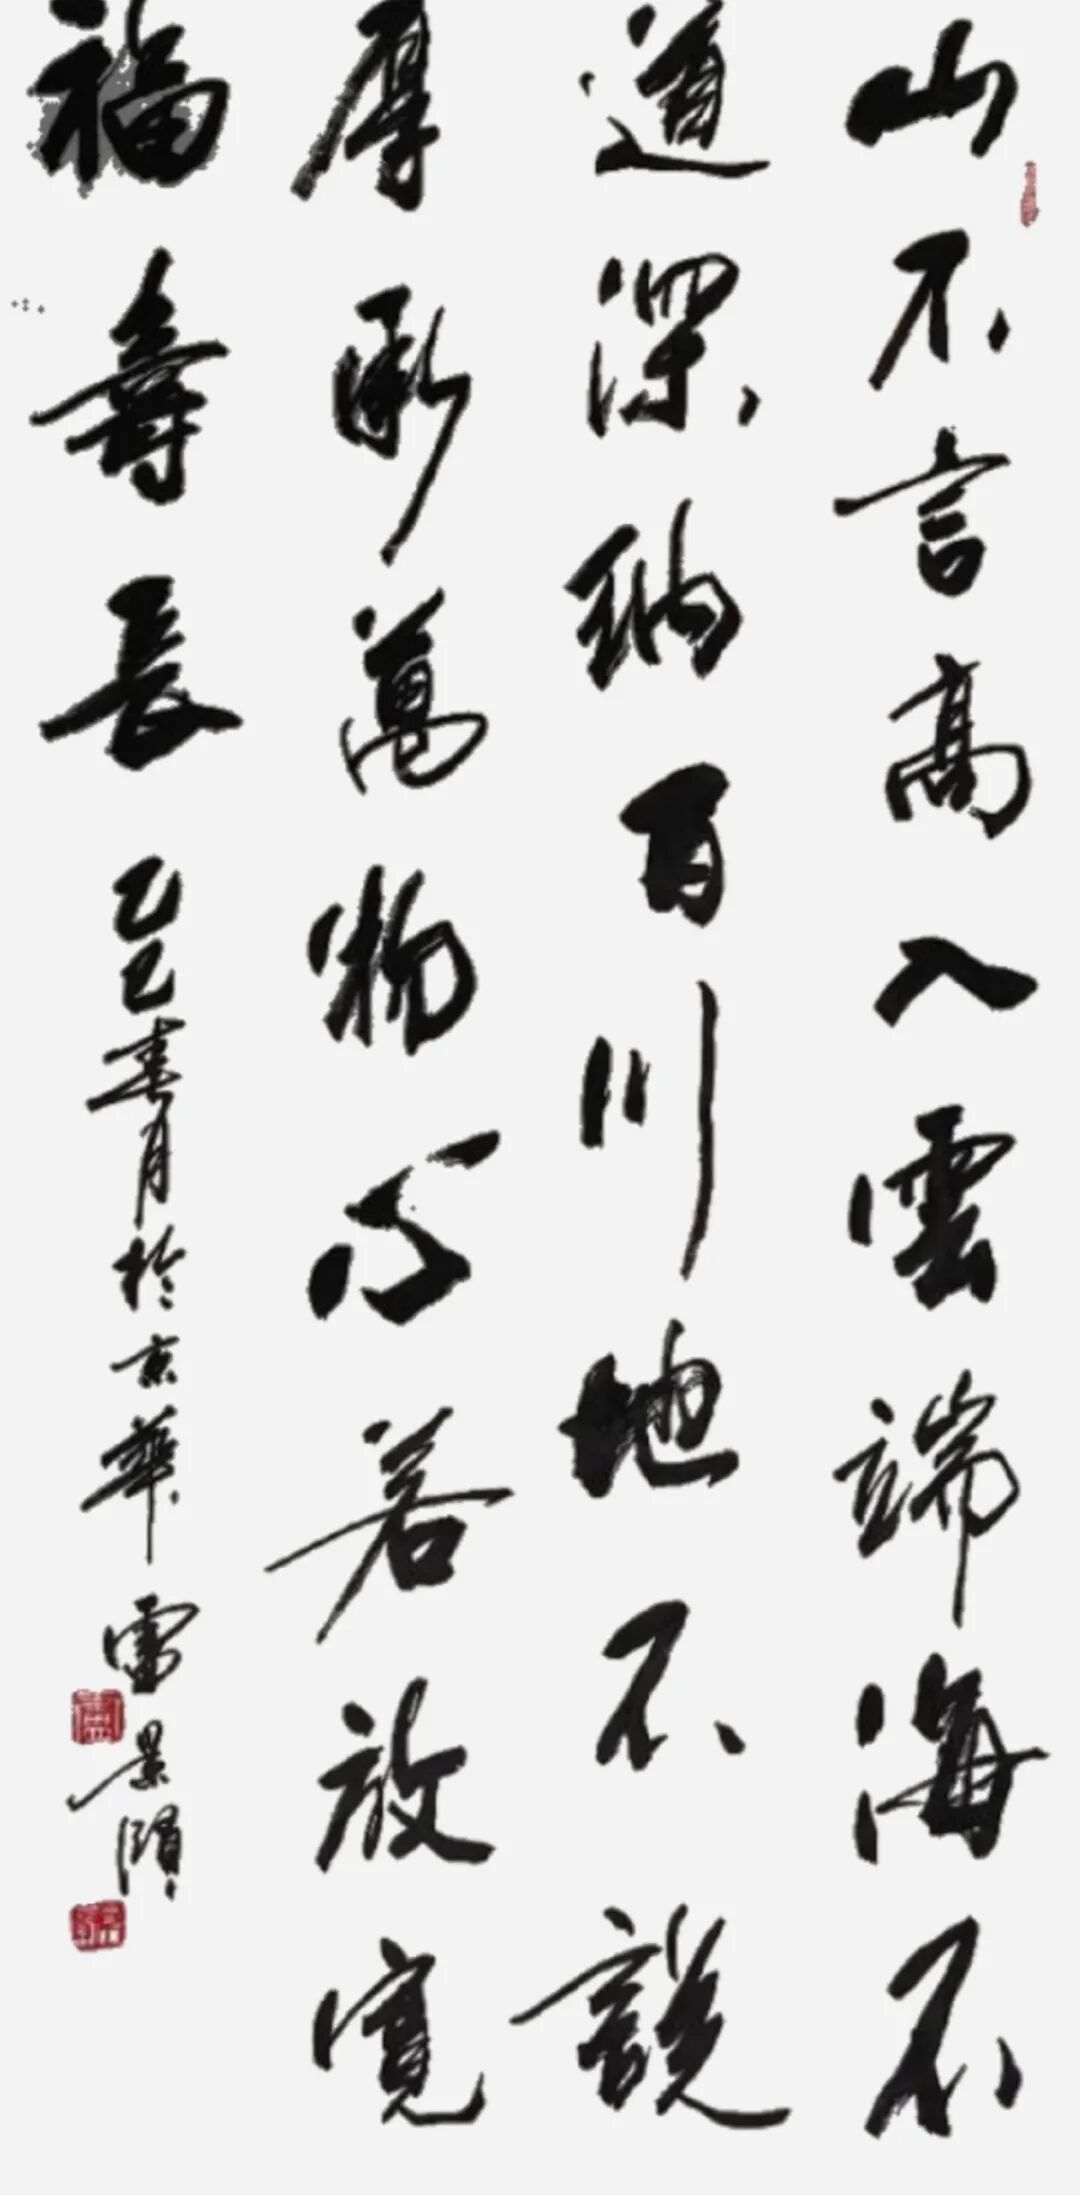 山不言高入雲端海不
道深納百川地不說
厚承萬物心若放寬
福壽長
乙巳春月於京華雷景